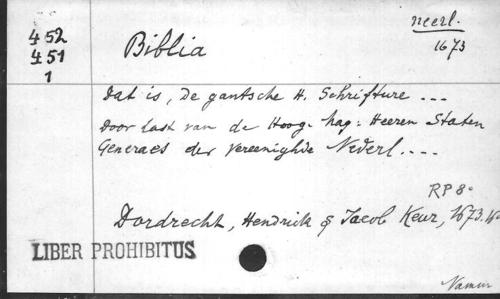 452
451
1
Biblia
neerl.
1673
Dat is, De gantsche H. Schrifture ...
Door last van de Hoog: hag: Heeren Staten
Generaes der Vereenighde Nederl....
RP 8°
Dordrecht, Hendrick & Jacob Keur, 1673.
LIBER PROHIBITUS
Namur